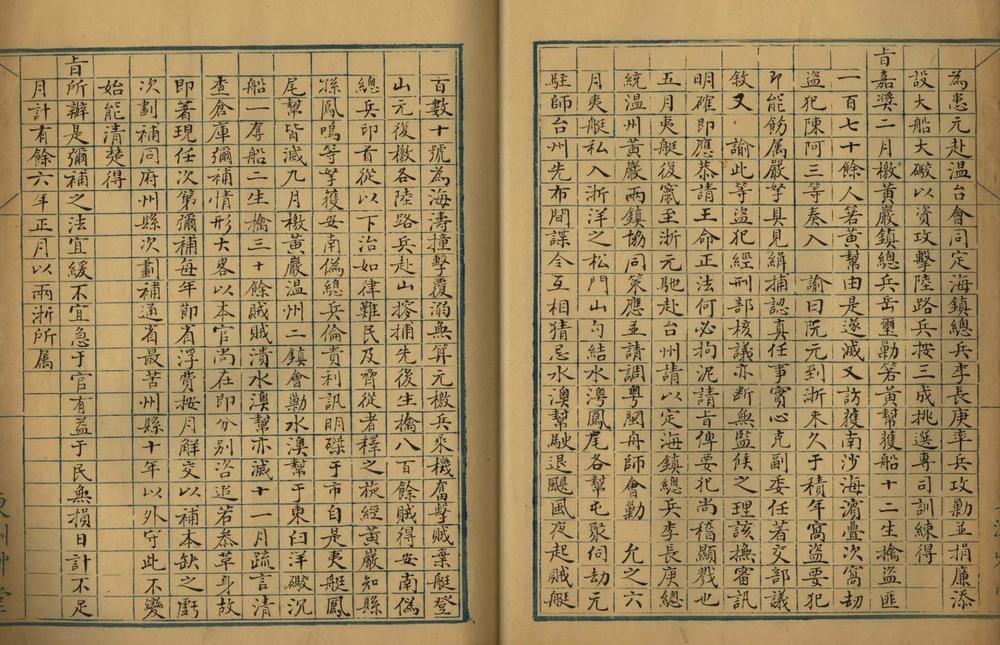 為患元赴温台會同定海鎮總兵李長庚率兵攻勦並捐廉添
設大船大礮以資攻擊陸路兵按三成挑選專司訓練得
旨嘉獎二月檄黃巖鎮總兵岳璽勦箬黃幫獲船十二生擒盜匪
一百七十餘人箬黃幫由是遂滅又訪獲南沙海濵疊次窩劫
盜犯陳阿三等奏入　諭曰阮元到浙未久于積年窩盜要犯
即能飭属嚴拏具見緝捕認真任事實心克副委任著交部議
敘又　諭此等盜犯經刑部核議亦断無監候之理該撫審訊
明確即應恭請王命正法何必拘泥請旨俾要犯尚稽顯戮也
五月夷艇復竄至浙元馳赴台州請以定海鎮總兵李長庚總
統温州黃巖兩鎮協同策應並請調粤閩舟師會勦　允之六
月夷艇私入浙洋之松門山勾結水澳鳳尾各幫屯聚伺劫元
駐師台州先布間諜令互相猜忌水澳幫駛退颶風夜起賊艇
百數十號為海濤撞擊覆溺無算元檄兵乘機奮擊賊棄艇登
山元復檄各陸路兵赴山搜捕先後生擒八百餘賊得安南偽
總兵印首從以下治如律難民及脅從者釋之荻經黃巖知縣
孫鳳鳴等拏獲安南偽總兵倫貴利訊明磔于市自是夷艇鳳
尾幫皆滅九月檄黃巖温州二鎮會勦水澳幫于東臼洋礮沉
船一奪船二生擒三十餘賊賊潰水澳幫亦滅十一月疏言清
查倉庫彌補情形大畧以本官尚在即分别咨追若叅革身故
即著現任次第彌補每年節省浮費按月解交以補本缺之虧
次劃補同府州縣次劃補通省最苦州縣十年以外守此不變
始能清楚得
旨所辦是彌補之法宜緩不宜急于官有益于民無損日計不足
月計有餘六年正月以兩浙所属